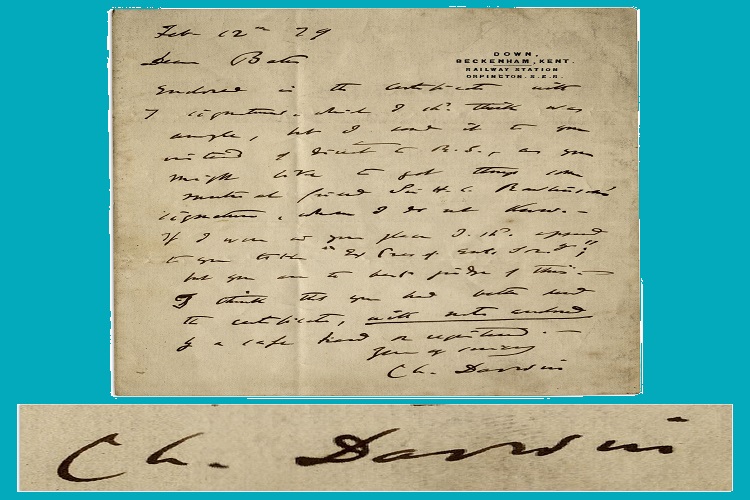 Feb 12th 79
DOWN,
BECKENHAM, KENT.
RAILWAY STATION
ORPINGTON. S.E.R.
Dear Bates
Enclosed is the certificate with
7 signatures, which I shd. think was
ample, but I send it to you
instead of direct to R.S., as you
might like to get
friend Sir H. C. Rawlinson's
signature, whom I do not know.—
If I were in your place I shd. append
to you "Ex Pres of Ent. Socy";
but you are the best judge of this.—
I think that you had better send
the certificate,
by a safe hand or registered.—
Yours very sincerely
Ch. Darwin
Ch. Darwin